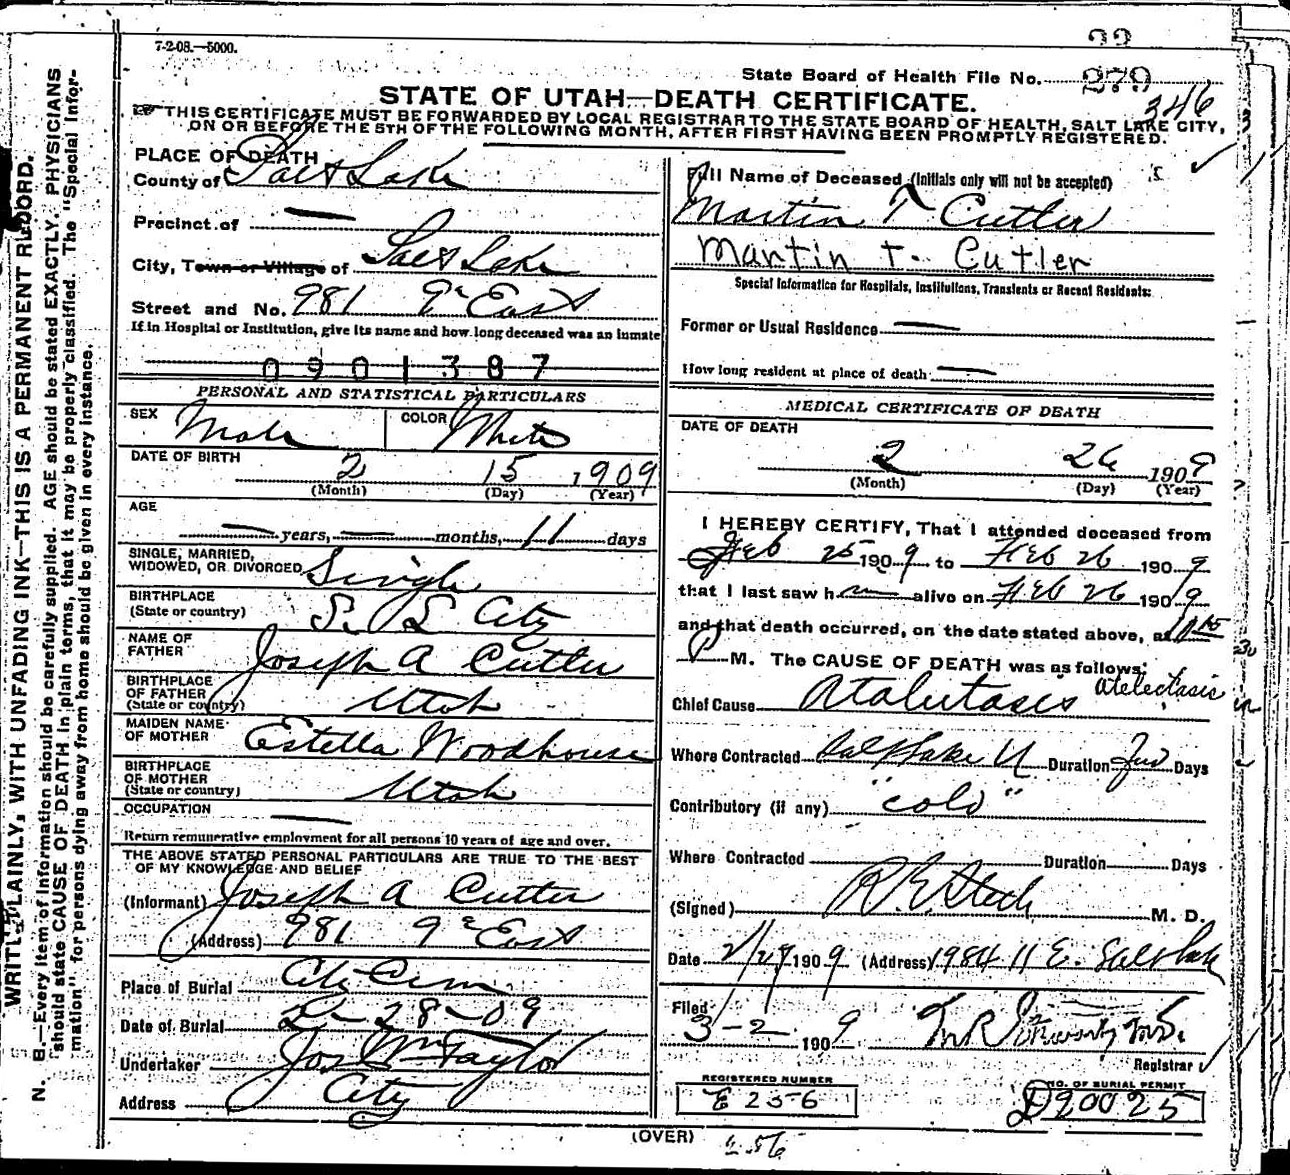 7-2-08.—5000.
State Board of Health File No. 279
346
STATE OF UTAH—DEATH CERTIFICATE.
THIS CERTIFICATE MUST BE FORWARDED BY LOCAL REGISTRAR TO THE STATE BOARD OF HEALTH, SALT LAKE CITY,
ON OR BEFORE THE 5TH OF THE FOLLOWING MONTH, AFTER FIRST HAVING BEEN PROMPTLY REGISTERED.
WRITE PLAINLY, WITH UNFADING INK—THIS IS A PERMANENT RECORD.
N. B.—Every item of information should be carefully supplied. AGE should be stated EXACTLY. PHYSICIANS
should state CAUSE OF DEATH in plain terms, that it may be properly classified. The "Special Infor-
mation" for persons dying away from home should be given in every instance.
PLACE OF DEATH
County of Salt Lake
Precinct of —
City, Town or Village of Salt Lake
Street and No. 981 9 East
If in Hospital or Institution, give its name and how long deceased was an inmate
0901387
PERSONAL AND STATISTICAL PARTICULARS
SEX Male COLOR White
DATE OF BIRTH 2 15 1909
(Month) (Day) (Year)
AGE
— years, — months, 11 days
SINGLE, MARRIED,
WIDOWED, OR DIVORCED Single
BIRTHPLACE
(State or country) S. L City
NAME OF
FATHER Joseph A Cutler
BIRTHPLACE
OF FATHER
(State or country) Utah
MAIDEN NAME
OF MOTHER Estella Woodhouse
BIRTHPLACE
OF MOTHER
(State or country) Utah
OCCUPATION —
Return remunerative employment for all persons 10 years of age and over.
THE ABOVE STATED PERSONAL PARTICULARS ARE TRUE TO THE BEST
OF MY KNOWLEDGE AND BELIEF
(Informant) Joseph A Cutler
(Address) 981 9 East
Place of Burial City Cem
Date of Burial 2-28-09
Undertaker Jos Wm Taylor
Address City
Full Name of Deceased (Initials only will not be accepted)
Martin T Cutler
Martin T. Cutler
Special Information for Hospitals, Institutions, Transients or Recent Residents:
Former or Usual Residence —
How long resident at place of death —
MEDICAL CERTIFICATE OF DEATH
DATE OF DEATH
2 26 1909
(Month) (Day) (Year)
I HEREBY CERTIFY, That I attended deceased from
Feb 25 1909 to Feb 26 1909
that I last saw him alive on Feb 26 1909
and that death occurred, on the date stated above, at
P M. The CAUSE OF DEATH was as follows:
Chief Cause Atalutasis Atelectasis
Where Contracted Salt Lake U Duration Two Days
Contributory (if any) "cold"
Where Contracted Duration Days
(Signed) M. D.
Date 2/27 1909 (Address) 1984 11 E. Salt Lake
Filed
3-2 1909
Registrar
REGISTERED NUMBER
E 256
NO. OF BURIAL PERMIT
D20025
(OVER)
256